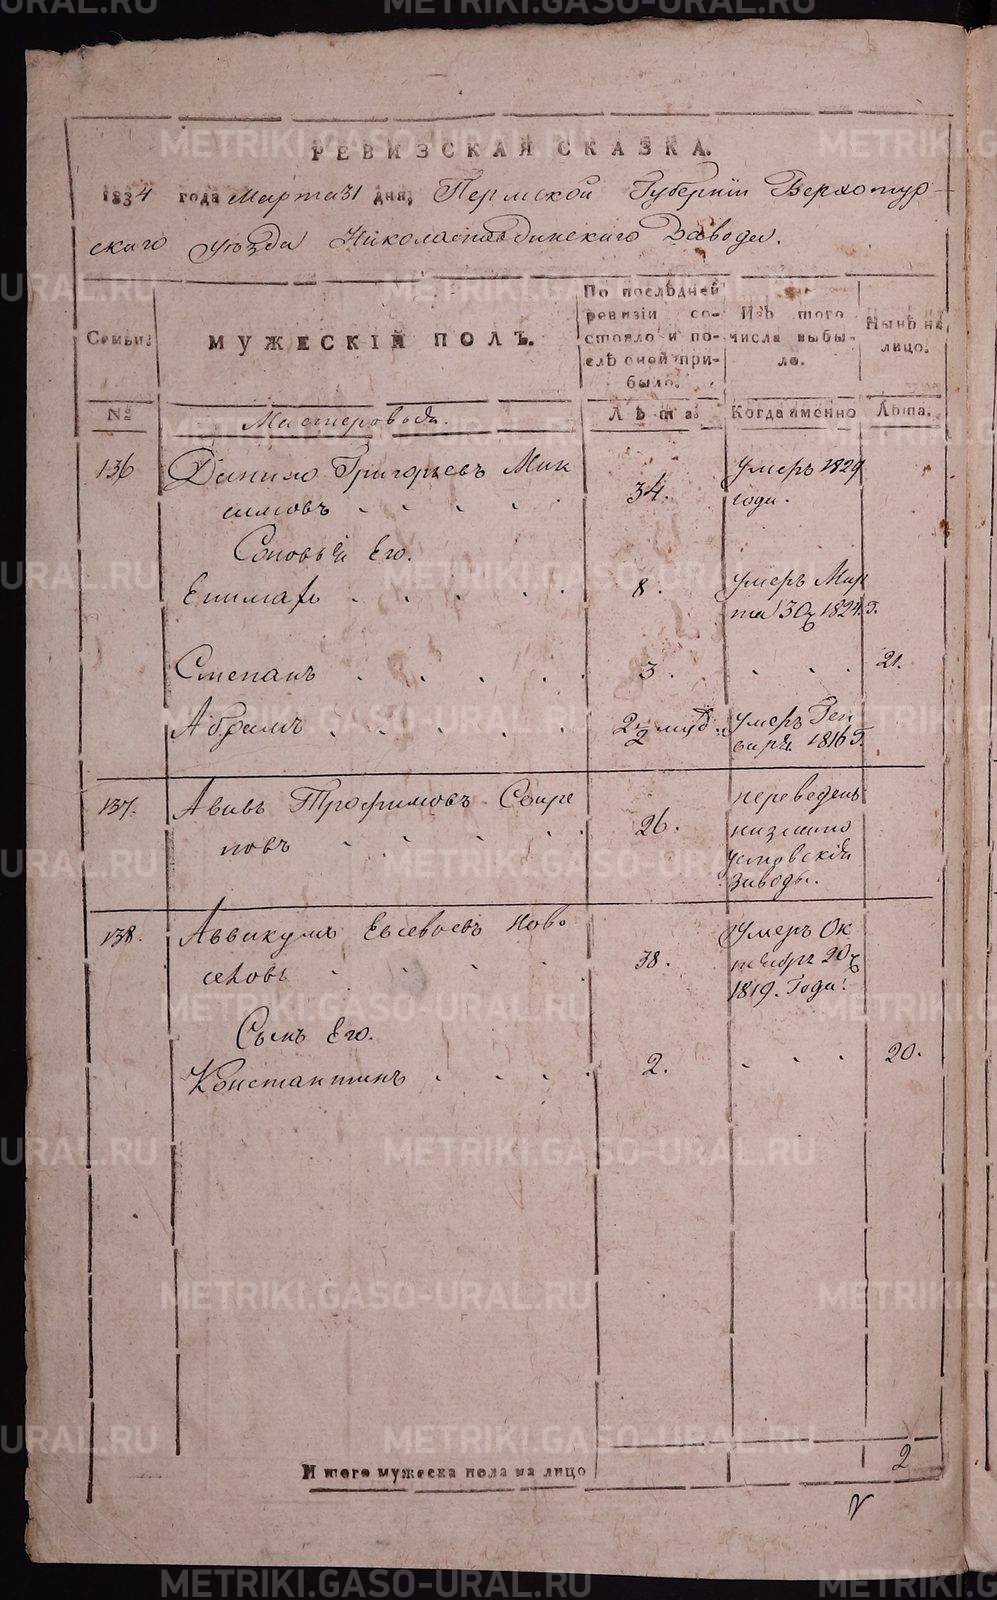 РЕВИЗСКАЯ СКАЗКА.
1834 года Марта 31 дня, Пермской Губернiи Верхотур-
скаго уѣзда Николаепавдинскаго Завода.
Семьи:
МУЖЕСКIЙ ПОЛЪ.
По послѣдней ревизiи состояло и послѣ оной прибыло.
Изъ того числа выбыло.
Нынѣ на лицо.
№
Мастеровые.
Лѣта.
Когда именно
Лѣта.
136
Данило Григорьевъ Мак
симовъ
34.
Умеръ 1829
года.
Сыновья Его.
Епимахъ
8.
умеръ Мар
та 30 1824 г.
Степанъ
3.
21.
Абрамъ
2
умеръ Ген
варя 1816 г.
137.
Авивъ Трофимовъ
26.
переведенъ
заводъ.
138.
Аввакумъ Евсевьевъ Ново
селовъ
38.
Умеръ Ок
тября 20
1819. Года.
Сынъ Его.
Константинъ
2.
20.
Итого мужеска пола на лицо
2
METRIKI.GASO-URAL.RU